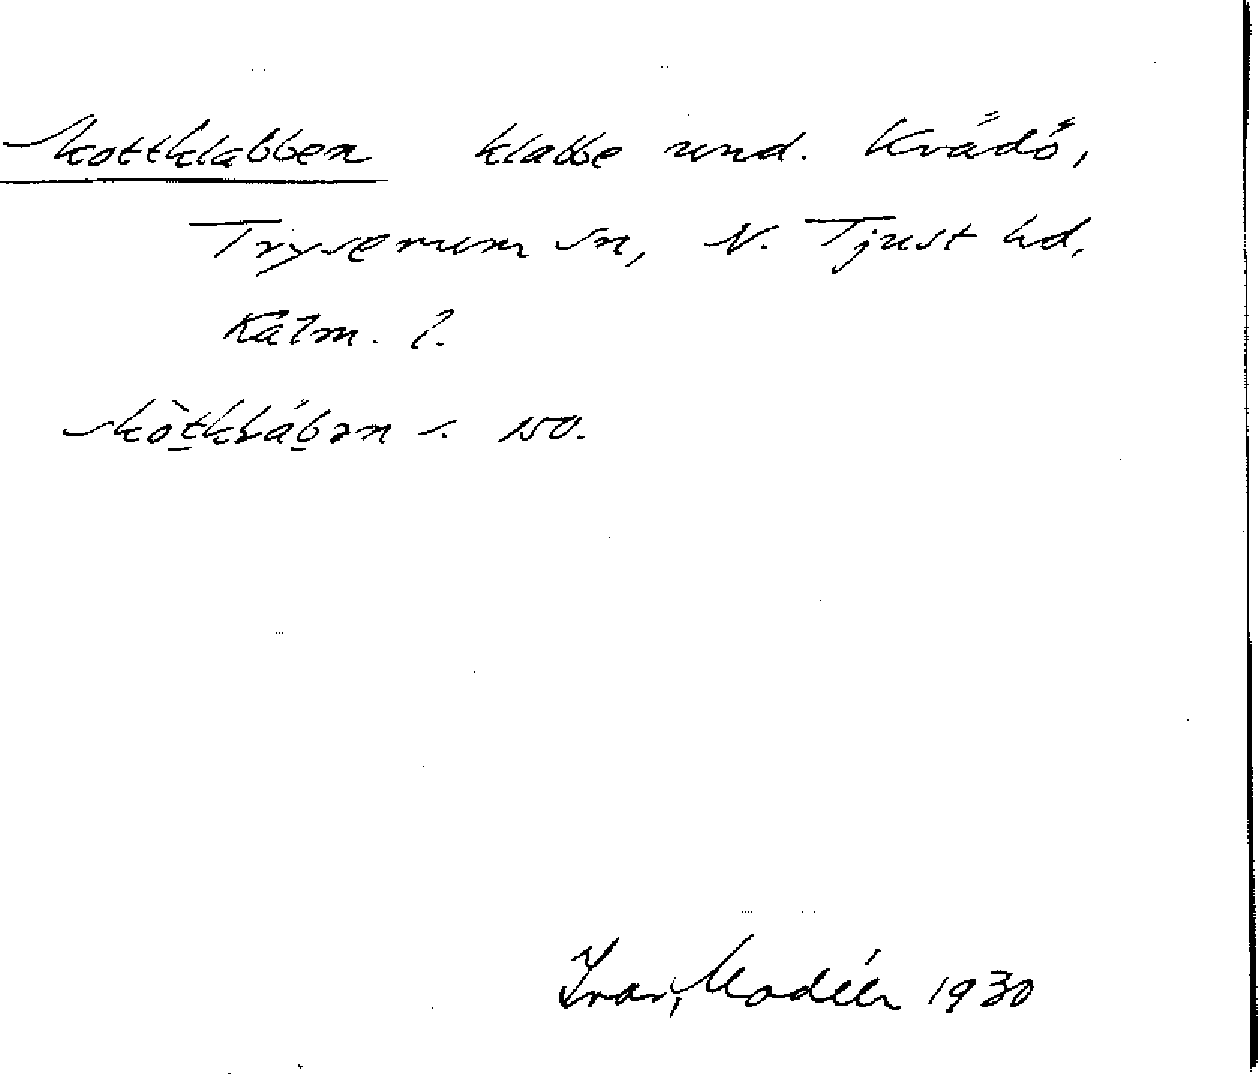 Skottklabben klabbe und. Kvädö,
Tryserum sn, N. Tjust hd.
Kalm. l.
skòt̲kláb̲ən s. 150.
Ivar Modéer 1930